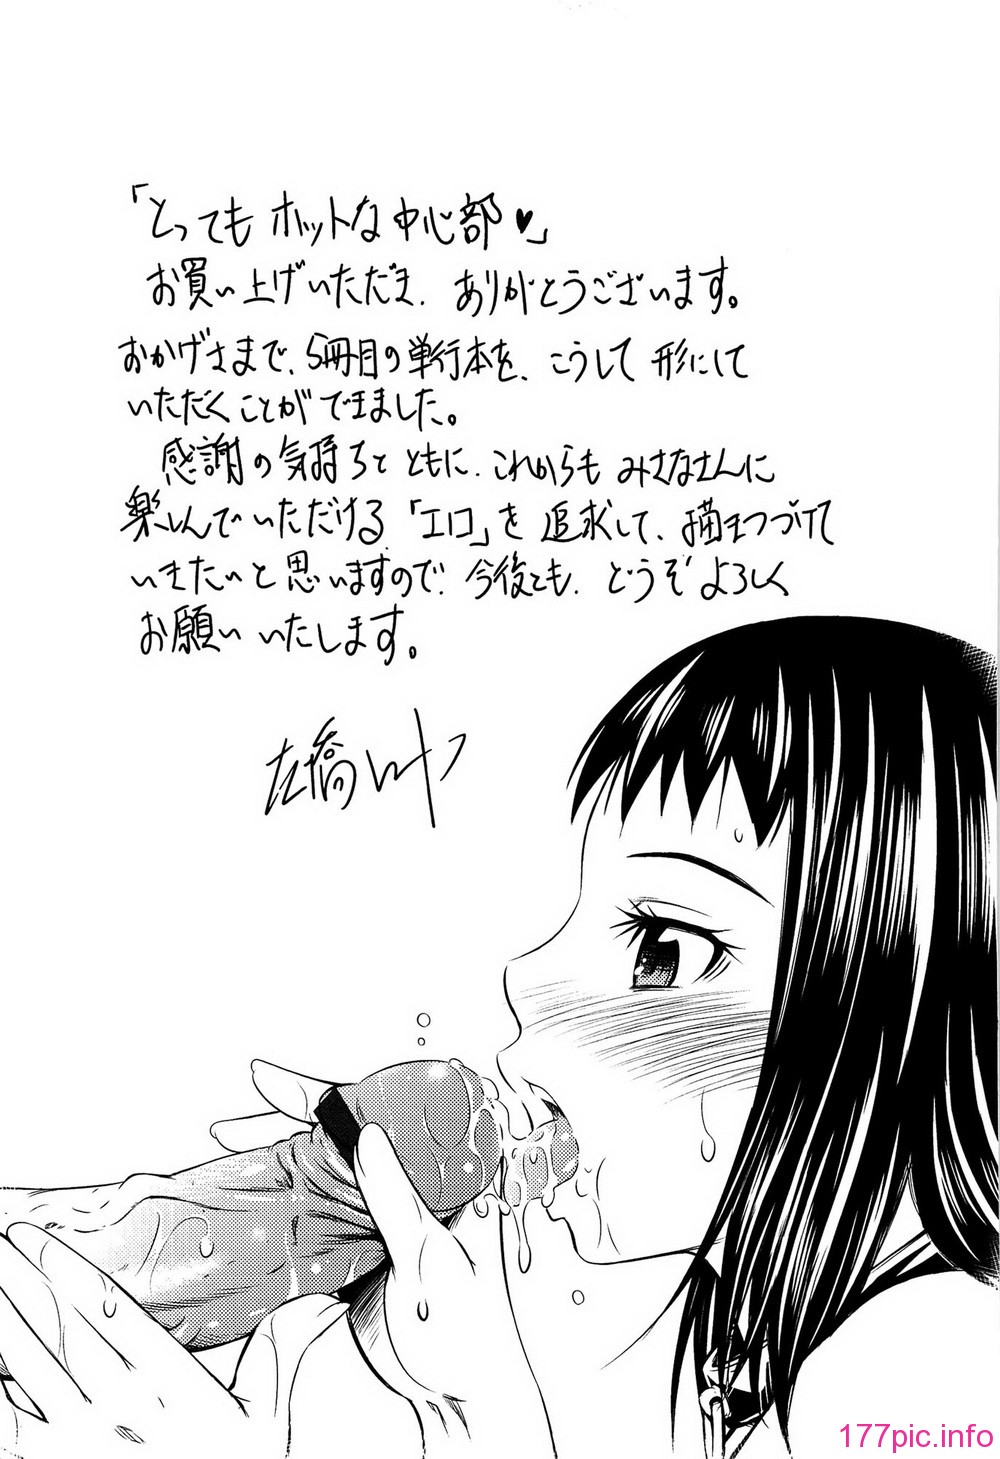 「とってもホットな中心部♥」
お買い上げいただき、ありがとうございます。
おかげさまで、5冊目の単行本を、こうして形にして
いただくことができました。
感謝の気持ちとともに、これからもみなさんに
楽しんでいただける「エロ」を追求して、描きつづけて
いきたいと思いますので、今後とも、どうぞよろしく
お願いいたします。
177pic.info